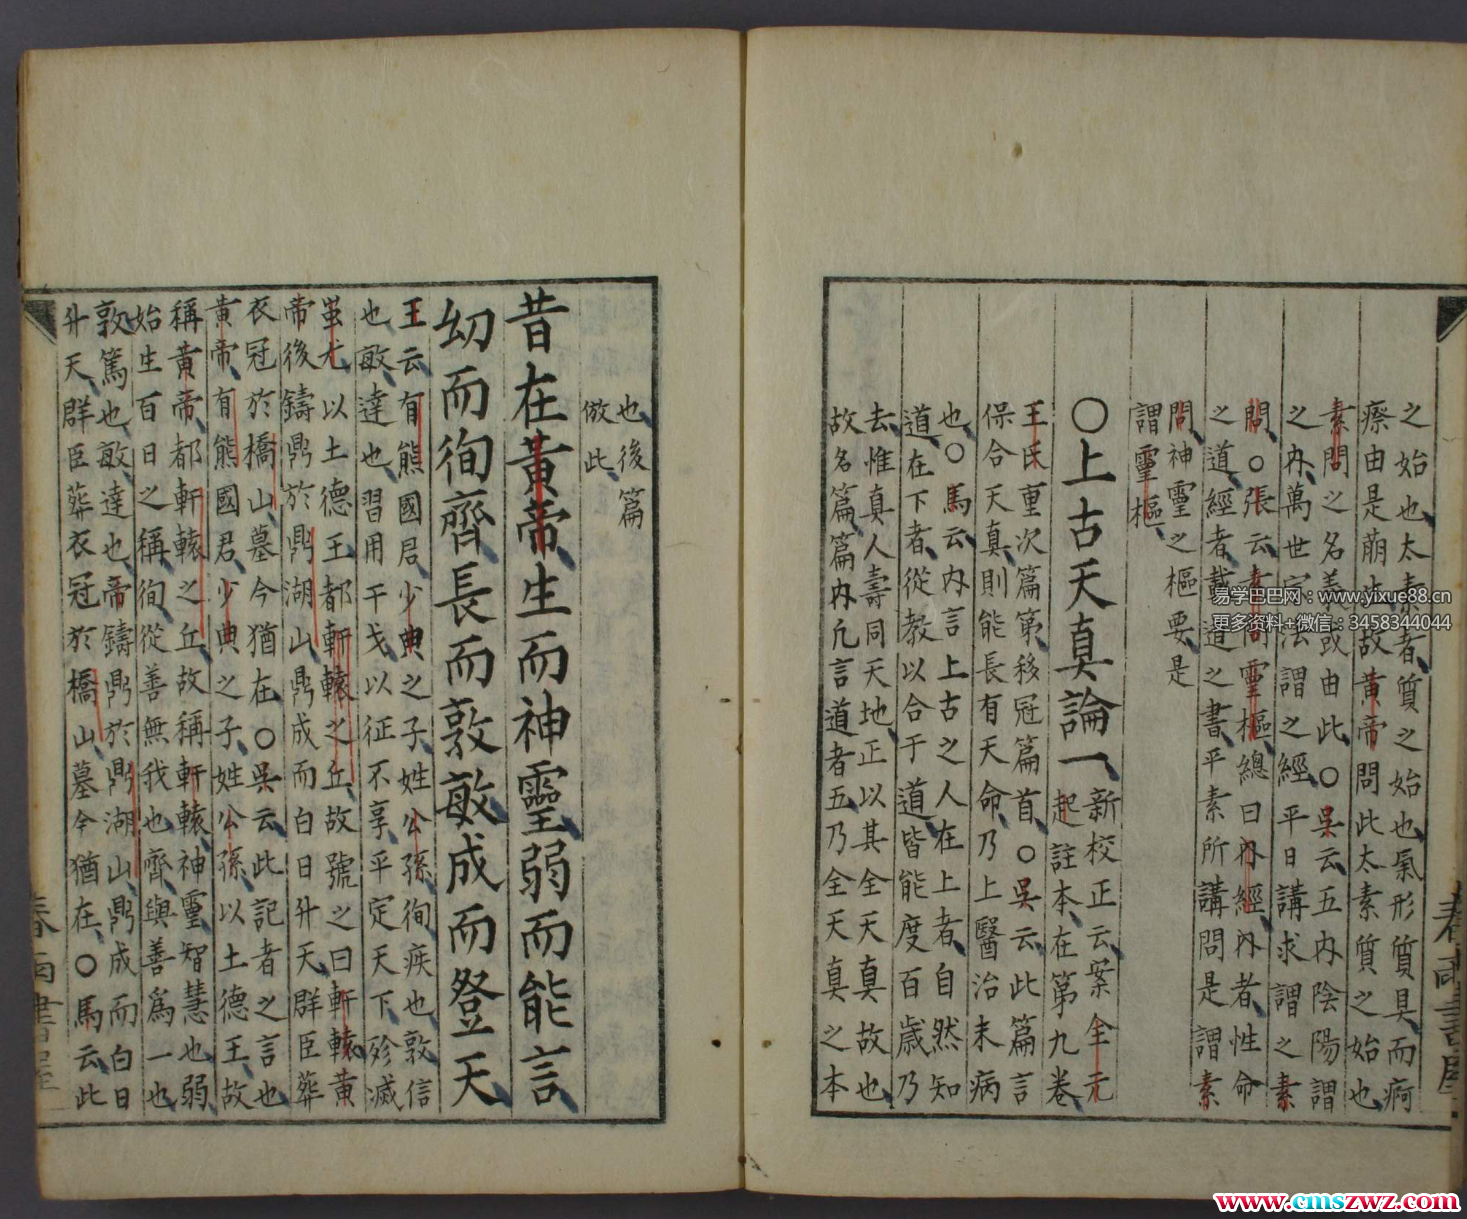 之始也太素者質之始也氣形質具而痾
瘵由是萠生故黄帝問此太素質之始也
素問之名義或由此○吳云五内陰陽謂
之内萬世宗法謂之經平日講求謂之素
問○張云素問靈樞總曰内經内者性命
之道經者載道之書平素所講問是謂素
問神靈之樞要是
謂靈樞
○上古天真論一
新校正云案全元
起註本在第九卷
王氏重次篇第移冠篇首○吳云此篇言
保合天真則能長有天命乃上醫治未病
也○馬云内言上古之人在上者自然知
道在下者從教以合于道皆能度百歳乃
去惟真人壽同天地正以其全天真故也
故名篇篇内凢言道者五乃全天真之本
也後篇
倣此
昔在黄帝生而神靈弱而能言
㓜而徇齊長而敦敏成而登天
王云有熊國君少典之子姓公孫徇疾也敦信
也敏達也習用干戈以征不享平定天下殄滅
蚩尤以土德王都軒轅之丘故號之曰軒轅黄
帝後鑄鼎於鼎湖山鼎成而白日升天群臣葬
衣冠於橋山墓今猶在○吳云此記者之言也
黄帝有熊國君少典之子姓公孫以土德王故
稱黄帝都軒轅之丘故稱軒轅神靈智慧也弱
始生百日之稱徇從善無我也齊與善爲一也
敦篤也敏達也帝鑄鼎於鼎湖山鼎成而白日
升天群臣葬衣冠於橋山墓今猶在○馬云此
易学巴巴网：www.yixue88.cn
更多资料+微信：3458344044
www.cmszwz.com